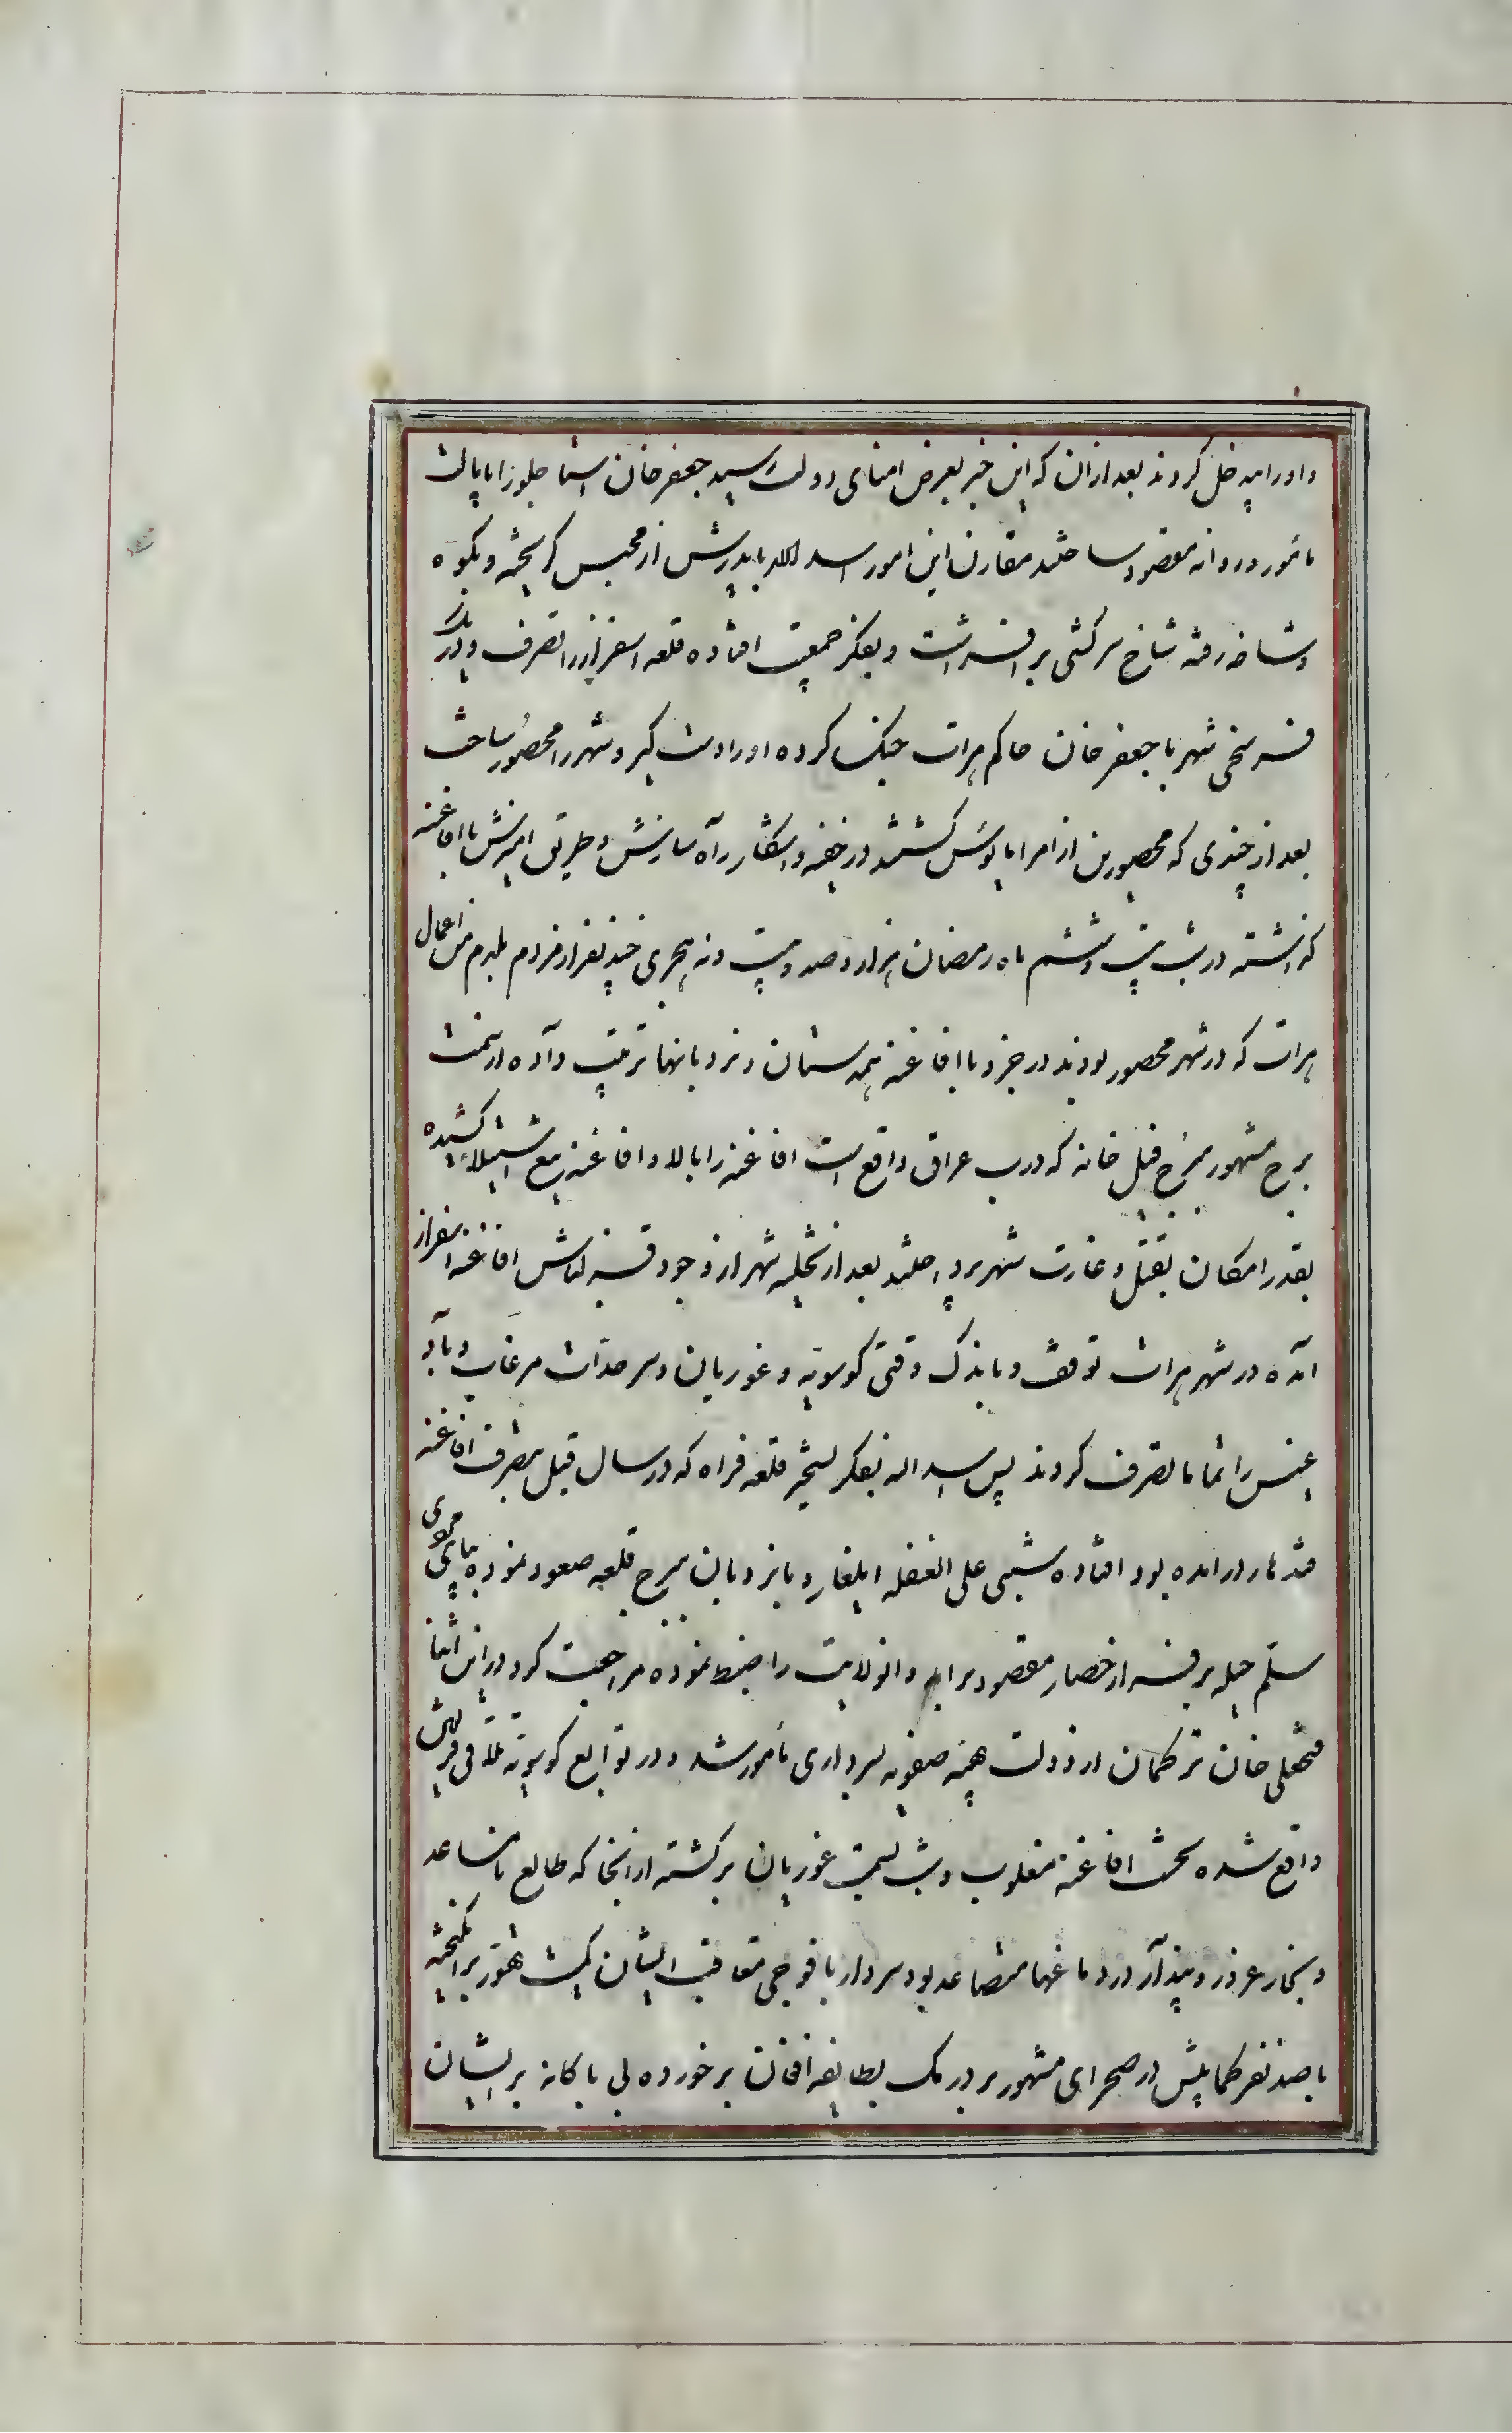 و او را بیدخل کردند بعد از ان که این خبر بعرض امنای دولت رسید جعفرخان استاجلو را بایالت
مامور و روانه مقصود ساختند مقارن این امور اسد الله با پدرش از محبس گریخته و بکوه
دشاخ رفته شاخ سرکشی بر افراشت و بفکر جمعیت افتاده قلعه اسفزار را تصرف و در یک
فرسخی شهر با جعفر خان حاکم هرات جنک کرده او را دستگیر و شهر را محصور ساخت
بعد از چندی که محصورین از امرا مایوس کشتند در خفیه و اشکار راه سازش و طریق امیزش با افاغنه
کذاشته در شب بیست و ششم ماه رمضان هزار و صد و بیست و نه هجری چند نفر از مردم بلده من اعمال
هرات که در شهر محصور بودند در جزو با افاغنه همدستان و نردبانها ترتیب داده از سمت
برج مشهور ببرج فیل خانه که درب عراق واقع است افاغنه را بالا و افاغنه تیغ استیلا کشیده
بقدر امکان بقتل و غارت شهر پرداختند بعد از تخلیه شهر از وجود قزلباش افاغنه اسفزار
آمده در شهر هرات توقف و باندک وقتی کوسویه و غوریان و سرحدات مرغاب و باد
غیس را تماما تصرف کردند پس اسد اله بفکر تسخیر قلعه فراه که در سال قبل بتصرف افاغنه
قندهار درامده بود افتاده شبی علی الغفله ایلغار و با نردبان ببرج قلعه صعود نموده بپای مردی
سلم حیله بر فراز حصار مقصود برامد و انولایت را ضبط نموده مراجعت کرد در این اثنا
فتحعلی خان ترکمان از دولت بهیه صفویه بسرداری مامور شد و در توابع کوسویه تلاقی فریقین
واقع شده نخست افاغنه مغلوب و شب بسمت غوریان برکشته از انجا که طالع نامساعد
و بخار غرور و پندار در دماغها متصاعد بود سردار با فوجی متعاقب ایشان کمیت تهور برانکیخته
با صد نفر کمابیش در صحرای مشهور بر درمک بطایفه افغان برخورده بی باکانه بر ایشان